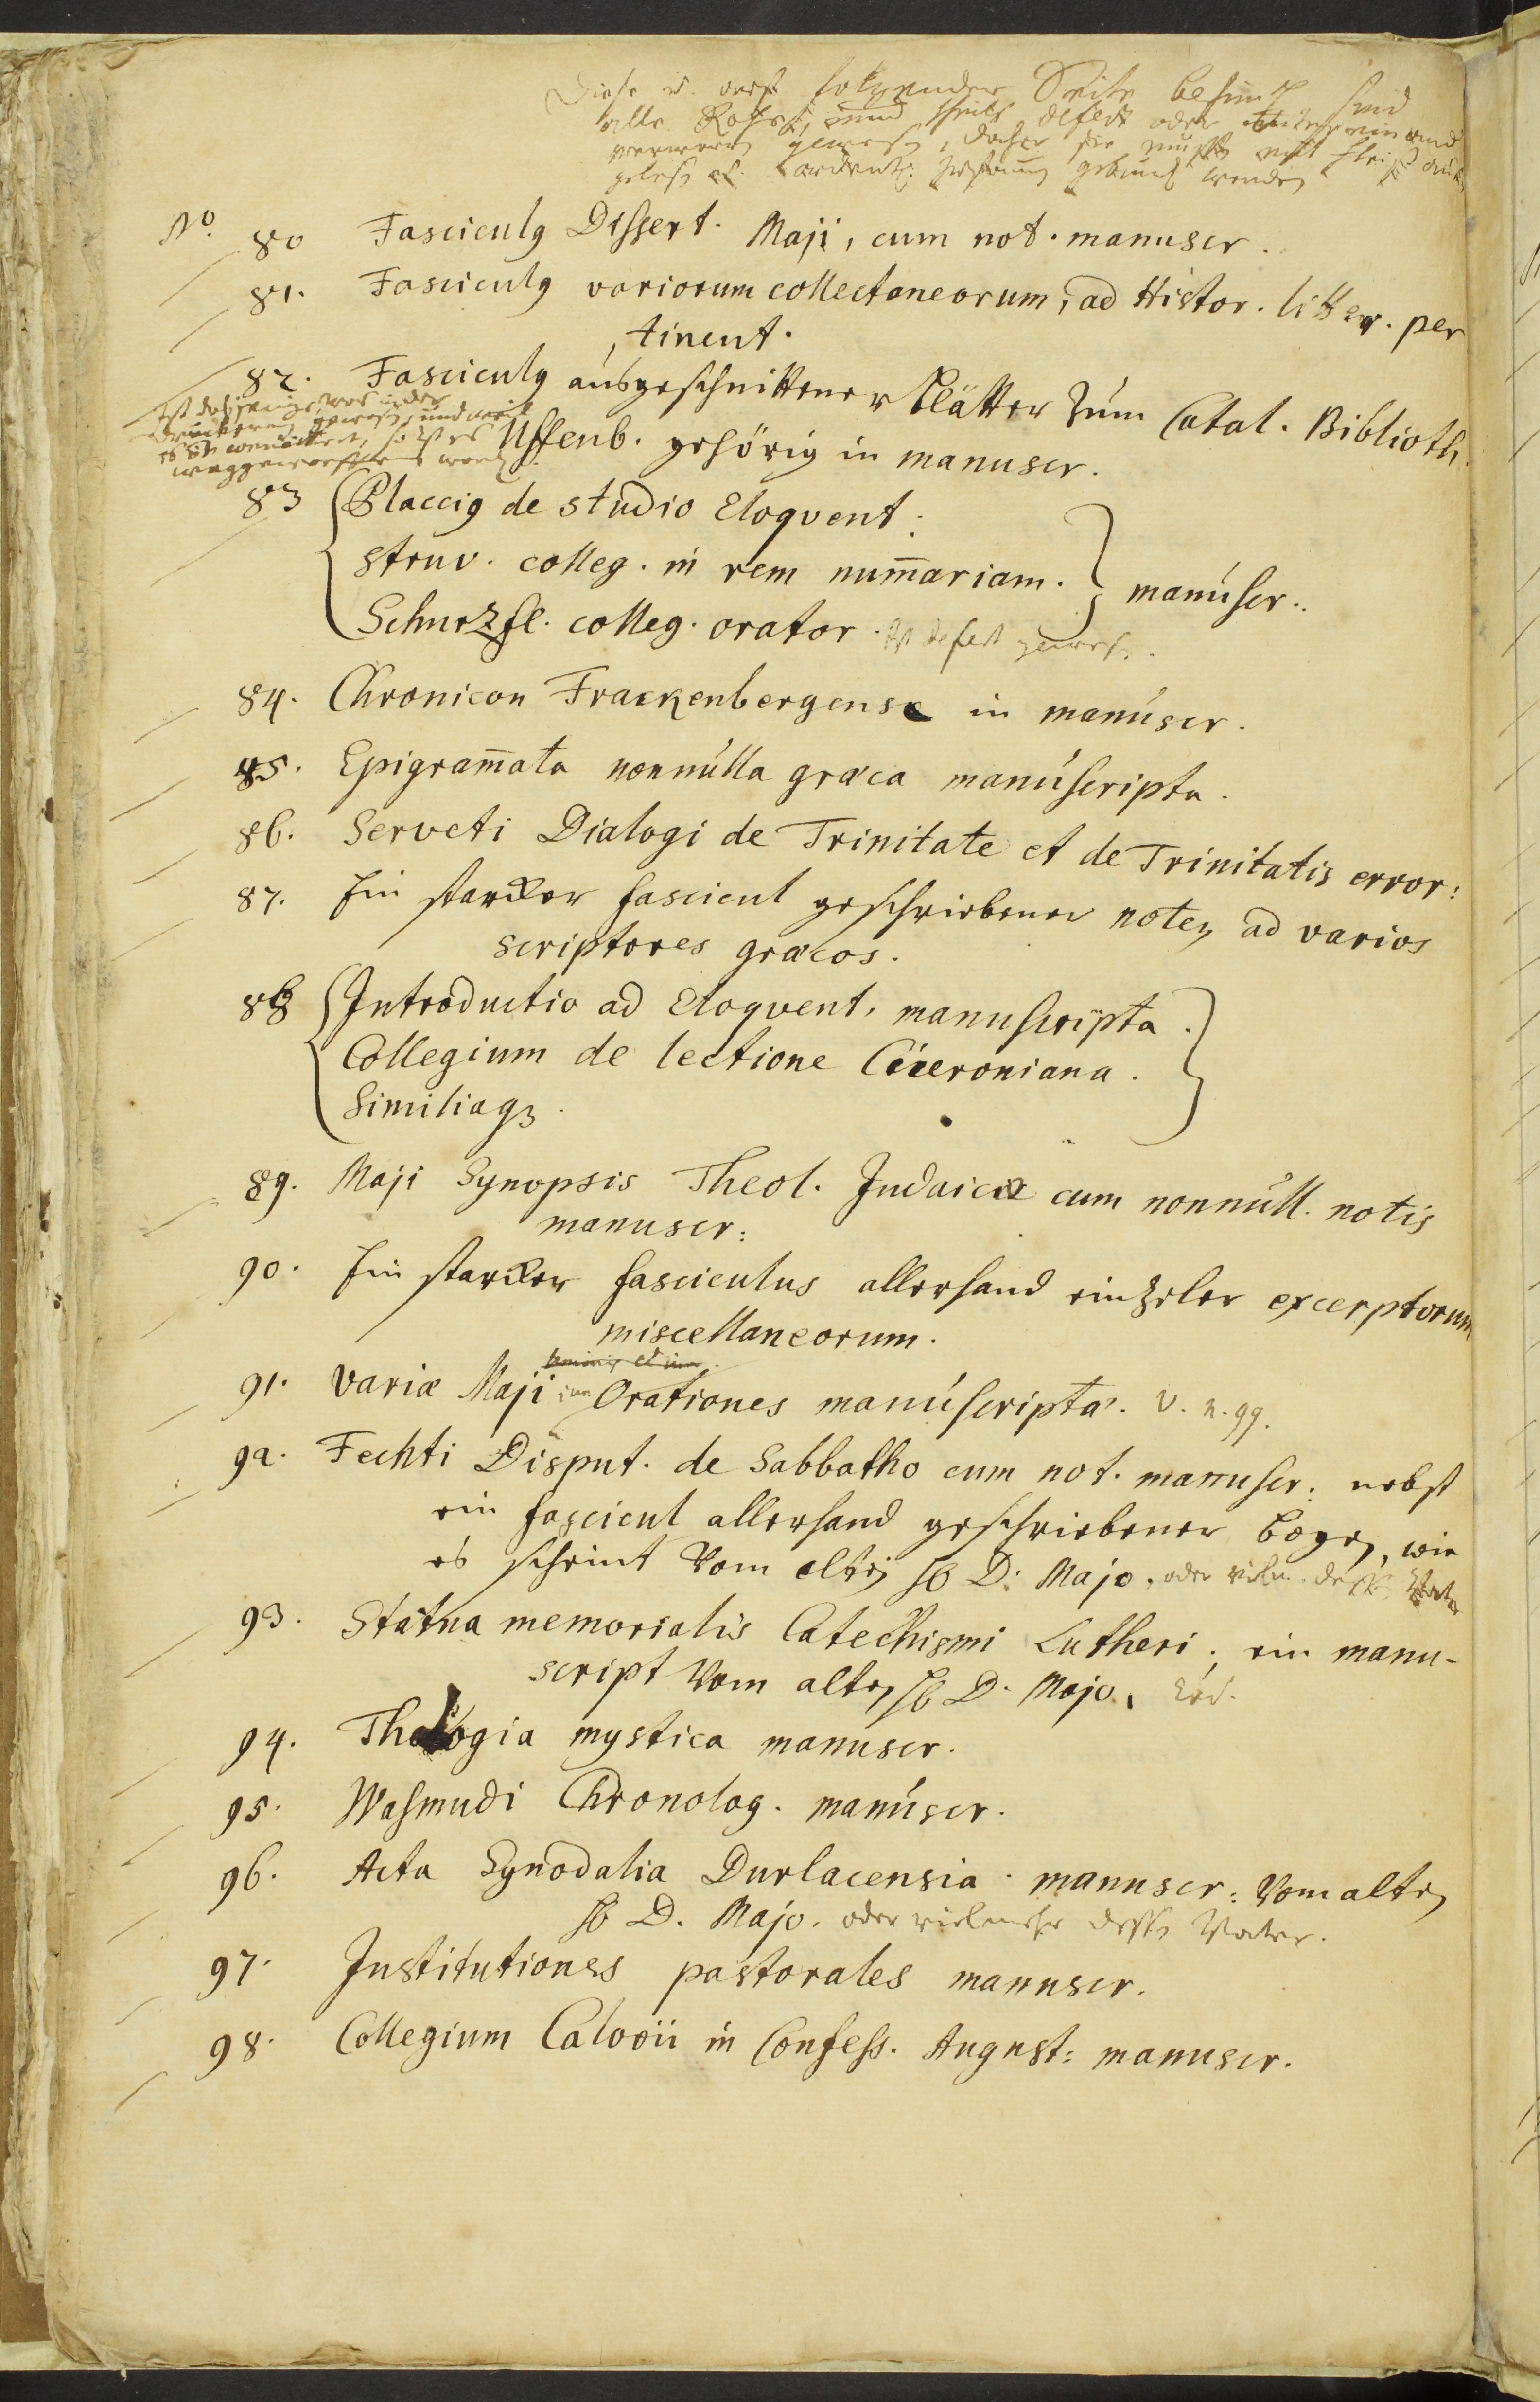 Diese u. auf folgender Seite befindl. sind
alle Rohss, und theils defect oder
gewesen, daher sie mußten mit Fleiß
geles. gebunden werden
No. 80 Fasciculg Dissert. Maji, cum not. manuscr.
81. Fasciculg variorum collectaneorum, ad Histor. litter. per
tinent.
82. Fasciculg ausgeschnittener Blätter zum Catal. Biblioth.
Ist dasjenige, was in der
Druckerey gewesen, und weil
es so ist es
weggeworffen word.
Uffenb. gehörig in manuscr.
83 Placcig de studio Eloqvent:
Struv. colleg. in rem num̄ariam. } manuscr..
Schurzfl. colleg. orator. Ist defect gewesen.
84. Chronicon Franckenbergense in manuscr.
85. Epigram̄ata nonnulla græca manuscripta.
86. Serveti Dialogi de Trinitate et de Trinitatis error:
87. Ein starcker fascicul geschriebener noten ad varios
scriptores græcos.
88 Introductio ad Eloqvent. manuscripta.
Collegium de lectione Ciceroniana.
Similiaq3.
89. Maji Synopsis Theol. Judaicæ cum nonnull. notis
manuscr:
90. Ein starcker fasciculus allerhand eintzeler excerptorum
miscellaneorum.
91. Variæ Maji Orationes manuscriptæ. v. n. 99.
92. Fechti Disput. de Sabbatho cum not. manuscr: nebst
ein fascicul allerhand geschriebener bogen, wie
es scheint vom alten H D. Majo. oder vielm. dessen Vater
93. Statua memorialis Catechismi Lutheri; ein manu-
script vom alten H D. Majo.
94. Theologia mystica manuscr.
95. Wasmudi Chronolog. manuscr.
96. Acta Synodalia Durlacensia manuscr: vom alten
H D. Majo. oder vielmehr dessen Vater.
97. Institutiones pastorales manuscr.
98. Collegium Calovii in Confess. August: manuscr.